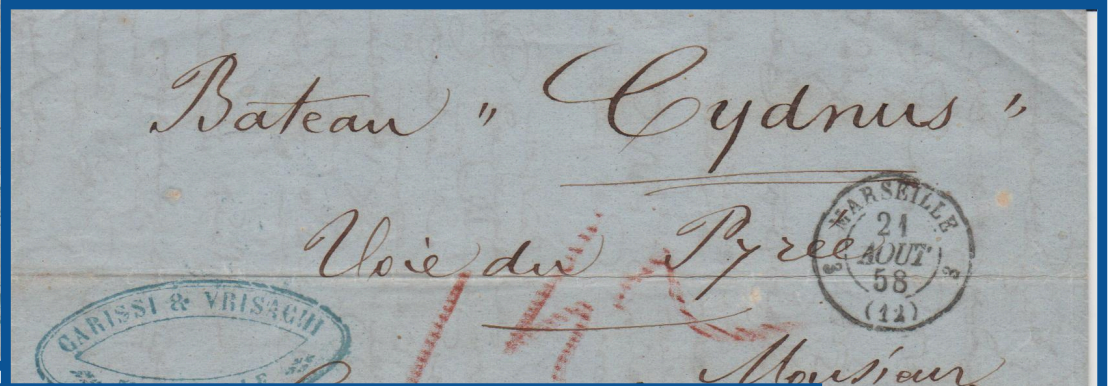 Bateau " Cydnus "
Voie du Pyrée
MARSEILLE
21
AOUT
58
(12)
CARISSI & VRISACHI
Monsieur